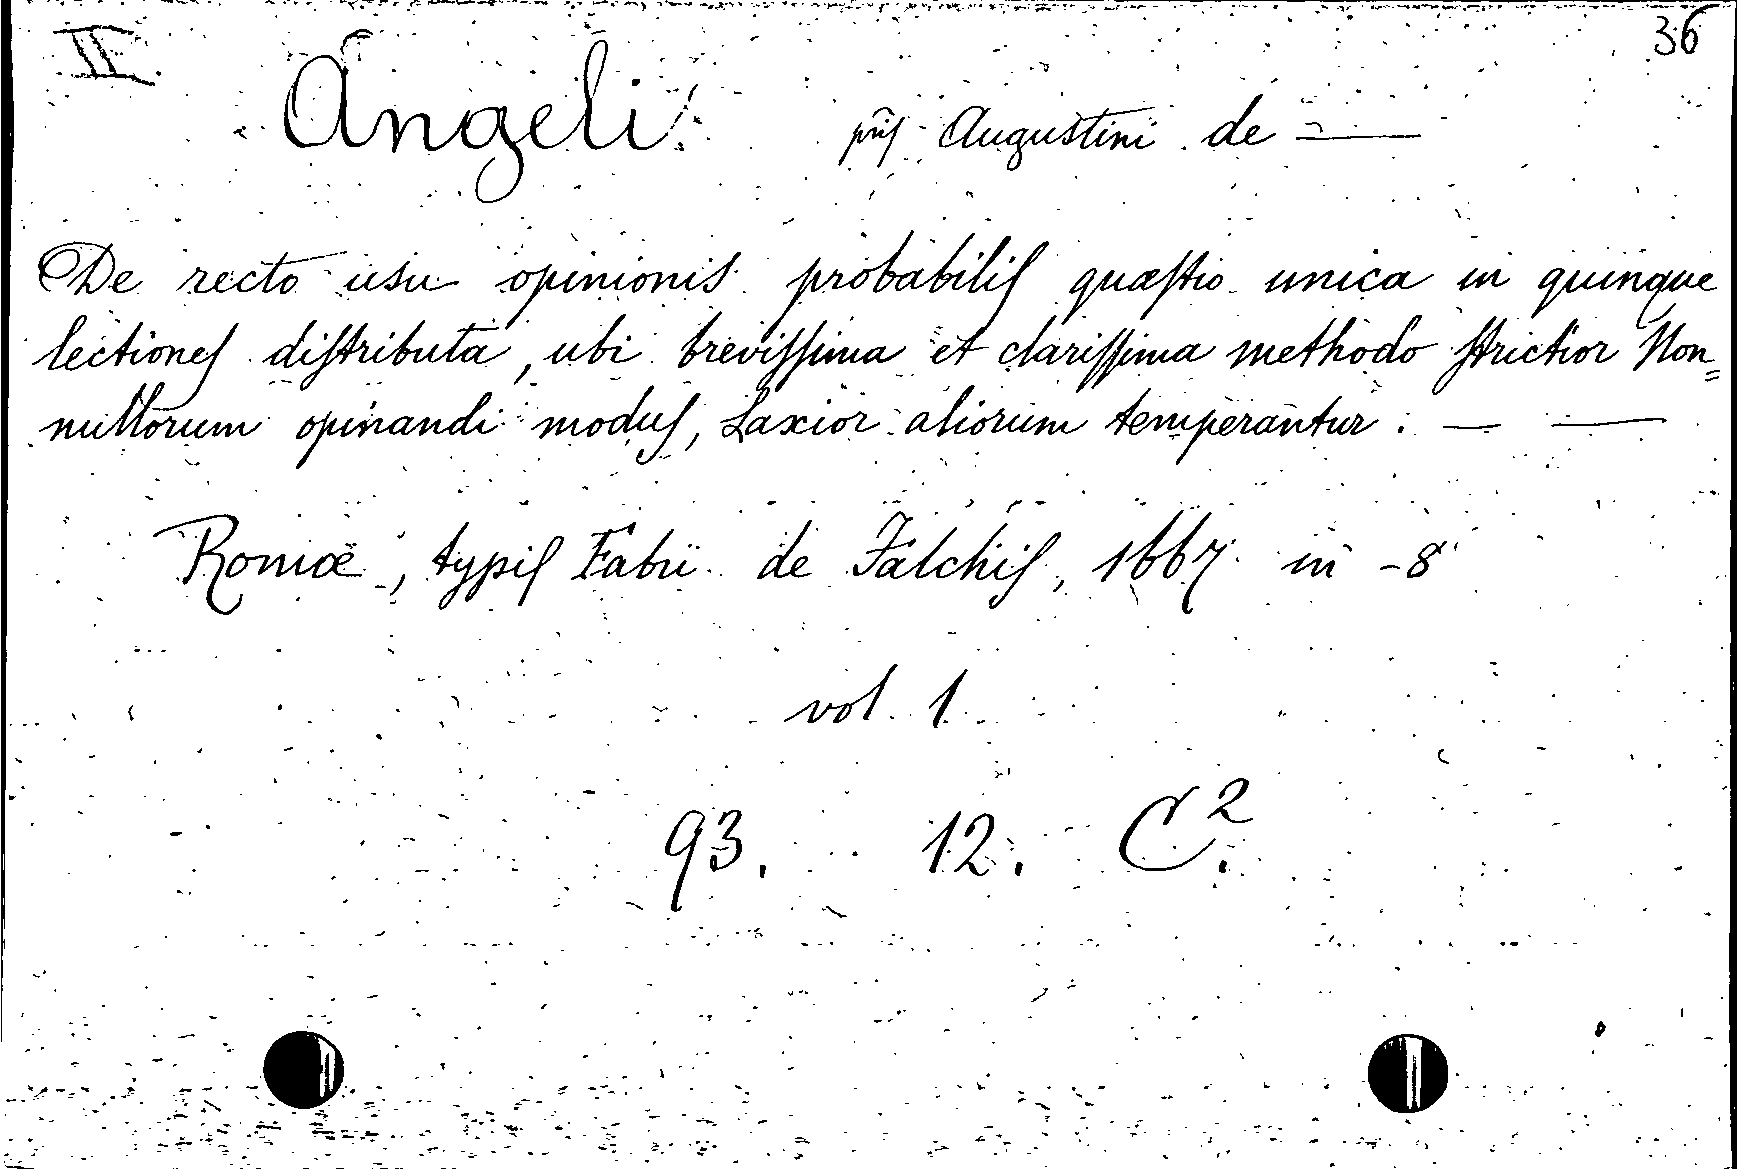 II 36
Angeli. Augustini de —
De recto usu opinionis probabilis quæstio unica in quinque
lectiones distributa, ubi brevissima et clarissima methodo strictior Non=
nullorum opinandi modus, Laxior aliorum temperantur: — —
Romæ, typis Fabii de Falchis, 1667 in -8°
vol. 1
93. 12. C².